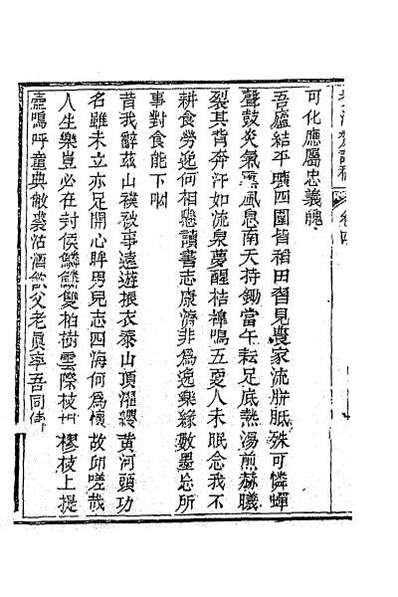 可化應屬忠義魄
吾廬結平疇四圍皆稻田習見農家流胼胝殊可憐蟬
聲鼓炎氣風息南天持鋤當午耘足底熱湯煎赫曦
裂其背奔汗如流泉夢醒桔槔鳴五夏人未眠念我不
耕食勞逸何相懸讀書志康濟非為逸樂緣數墨忘所
事對食能下咽
昔我辭茲山襆被事遠遊振衣泰山頂濯纓黄河頭功
名雖未立亦足開心眸男兒志四海何為懷故邱嗟哉
人生樂豈必在封侯鱗鱗雙柏樹雲際枝相樛枝上提
壺鳴呼童典敝裘沽酒飲父老真率吾同儔